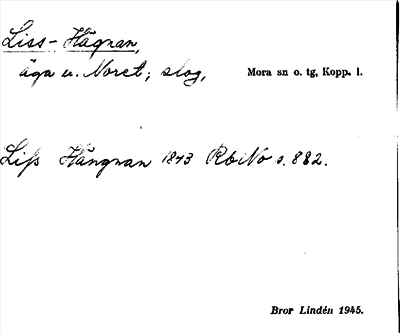 Liss-Hägnan,
äga u. Noret; slog, Mora sn o. tg, Kopp. l.
Liſs Hängnan 1843 RbNo s. 882.
Bror Lindén 1945.